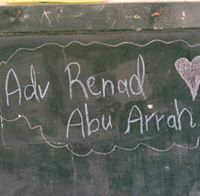 Adv Renad
Abu Arrah